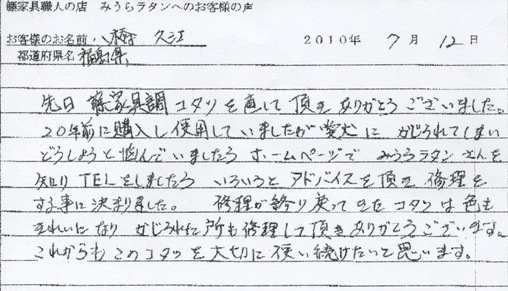 籐家具職人の店 みうらラタンへのお客様の声
お客様のお名前 八 久江 2010年 7月 12日
都道府県名 福島県
先日 籐家具調コタツを直して頂きありがとうございました。
20年前に購入し使用していましたが愛犬に かじられてしまい
どうしようと悩んでいましたら ホームページで みうらラタンさんを
知り TELをしましたら いろいろと アドバイスを頂き 修理を
する事に決まりました。 修理が終り戻ってきたコタツは色も
きれいになり かじられた所も修理して頂きありがとうございます。
これからもこのコタツを大切に使い続けたいと思います。